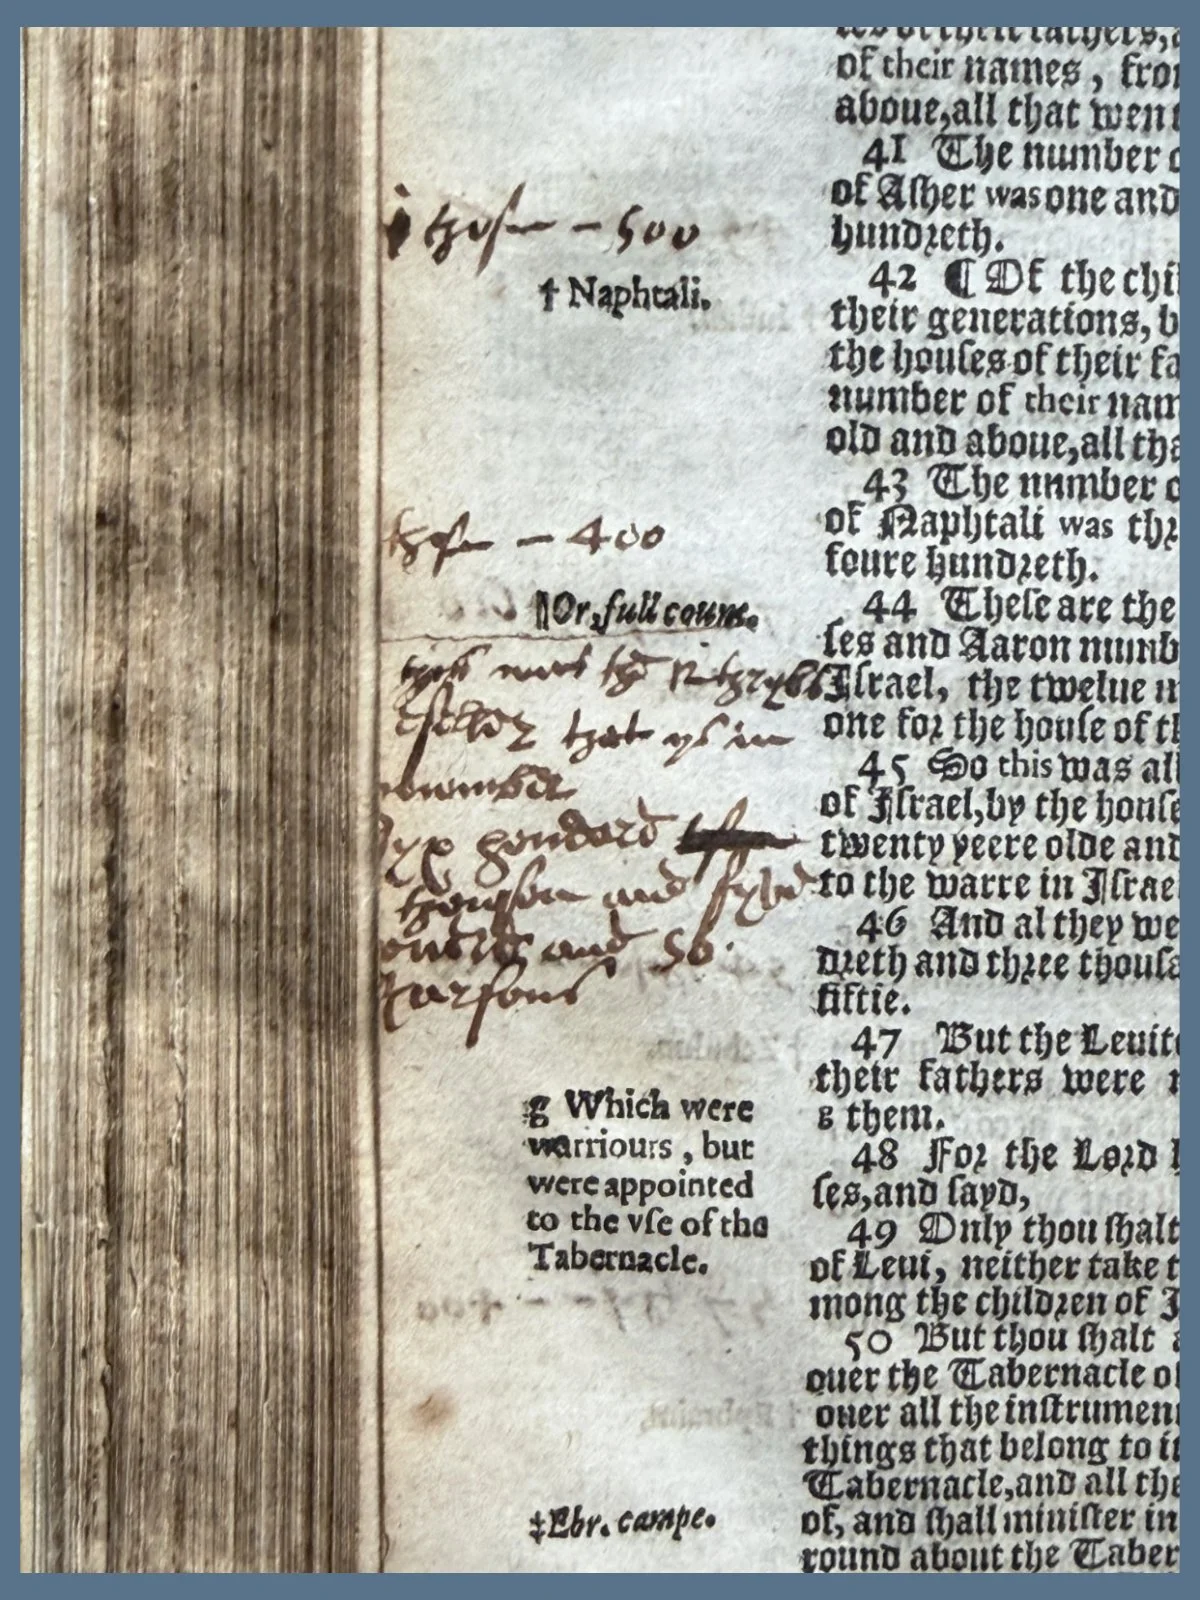 of their names, fro
aboue,all that went
41 The number o
of Aſher was one and
hundreth.
42 ¶ Of the chil
their generations, b
the houſes of their fa
number of their nam
old and aboue,all tha
43 The number o
of Naphtali was thr
foure hundreth.
44 Theſe are the
ſes and Aaron numb
Iſrael, the twelue m
one for the houſe of th
45 So this was all
of Iſrael,by the houſe
twenty yeere olde and
to the warre in Iſrae
46 And al they we
dreth and three thouſa
fiftie.
47 But the Leuite
their fathers were
g them.
48 For the Lord h
ſes,and ſayd,
49 Only thou ſhalt
of Leui, neither take t
mong the children of I
50 But thou ſhalt a
ouer the Tabernacle o
ouer all the inſtrumen
things that belong to it
Tabernacle,and all the
of, and ſhall miniſter in
round about the Taber
– 500
† Naphtali.
– 400
‖Or,full count.
that ys in
nomber
hondard
and
and 50
parſons
g Which were
warriours , but
were appointed
to the vſe of the
Tabernacle.
‡Ebr. campe.